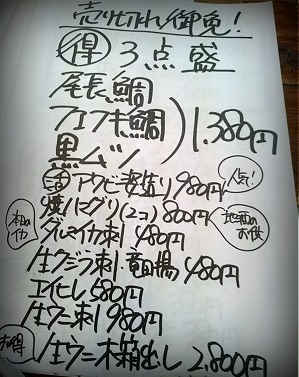 売り切れ御免!
得 3点盛
尾長鯛
フエフキ鯛
黒ムツ
1.380円
活 アワビ姿造り 980円
人気!
焼ハマグリ(2コ) 800円
地酒のお供
本日のイカ
ダルマイカ刺 480円
生クジラ刺・竜田揚 480円
エイヒレ 580円
生ウニ刺 980円
お得
生ウニ木箱出し 2.800円